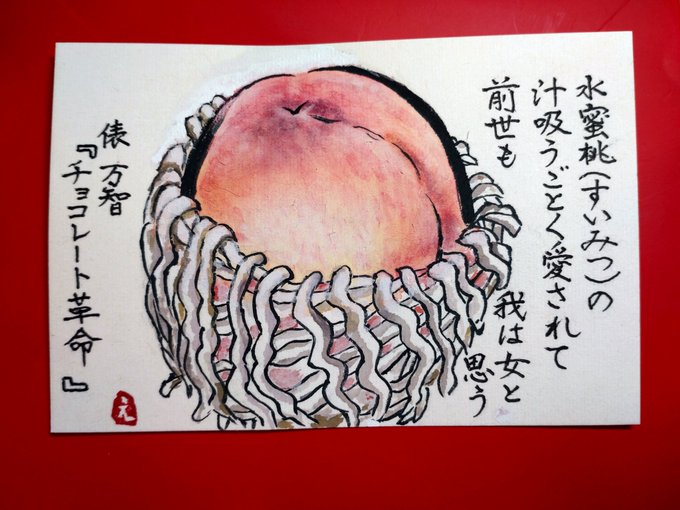 水蜜桃(すいみつ)の
汁吸うごとく愛されて
前世も
我は女と
思う
俵 万智
『チョコレート革命』